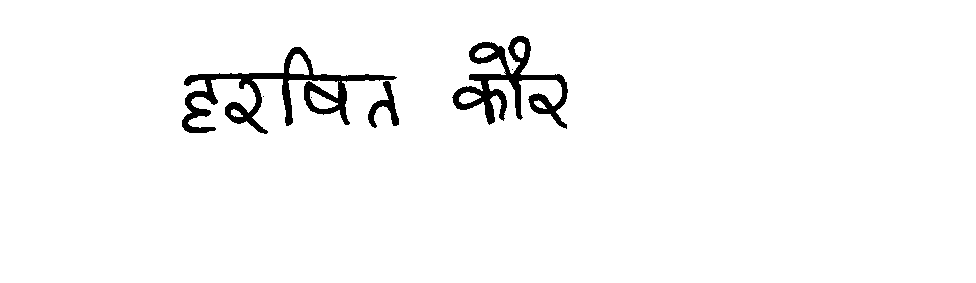 हरषित कौर